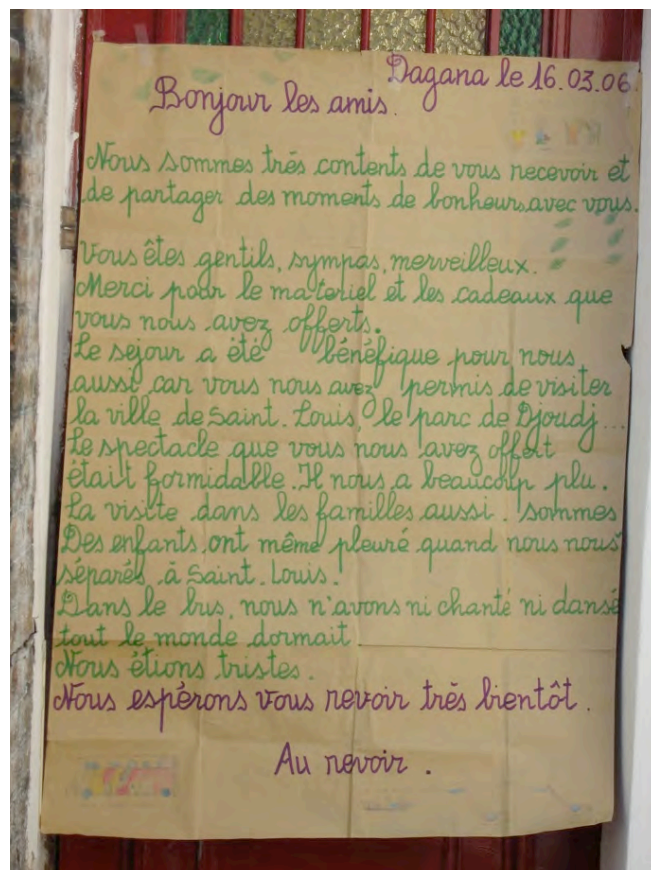 Dagana le 16.03.06.
Bonjour les amis.
Nous sommes très contents de vous recevoir et
de partager des moments de bonheurs avec vous.
Vous êtes gentils, sympas, merveilleux.
Merci pour le materiel et les cadeaux que
vous nous avez offerts.
Le sejour a été bénéfique pour nous
aussi car vous nous avez permis de visiter
la ville de Saint. Louis, le parc de Djoudj...
Le spectacle que vous nous avez offert
était formidable. Il nous a beaucoup plu.
La visite dans les familles aussi. sommes
Des enfants ont même pleuré quand nous nous
séparés à Saint. Louis.
Dans le bus, nous n'avons ni chanté ni dansé
tout le monde dormait
Nous étions tristes.
Nous espérons vous revoir très bientôt.
Au revoir.